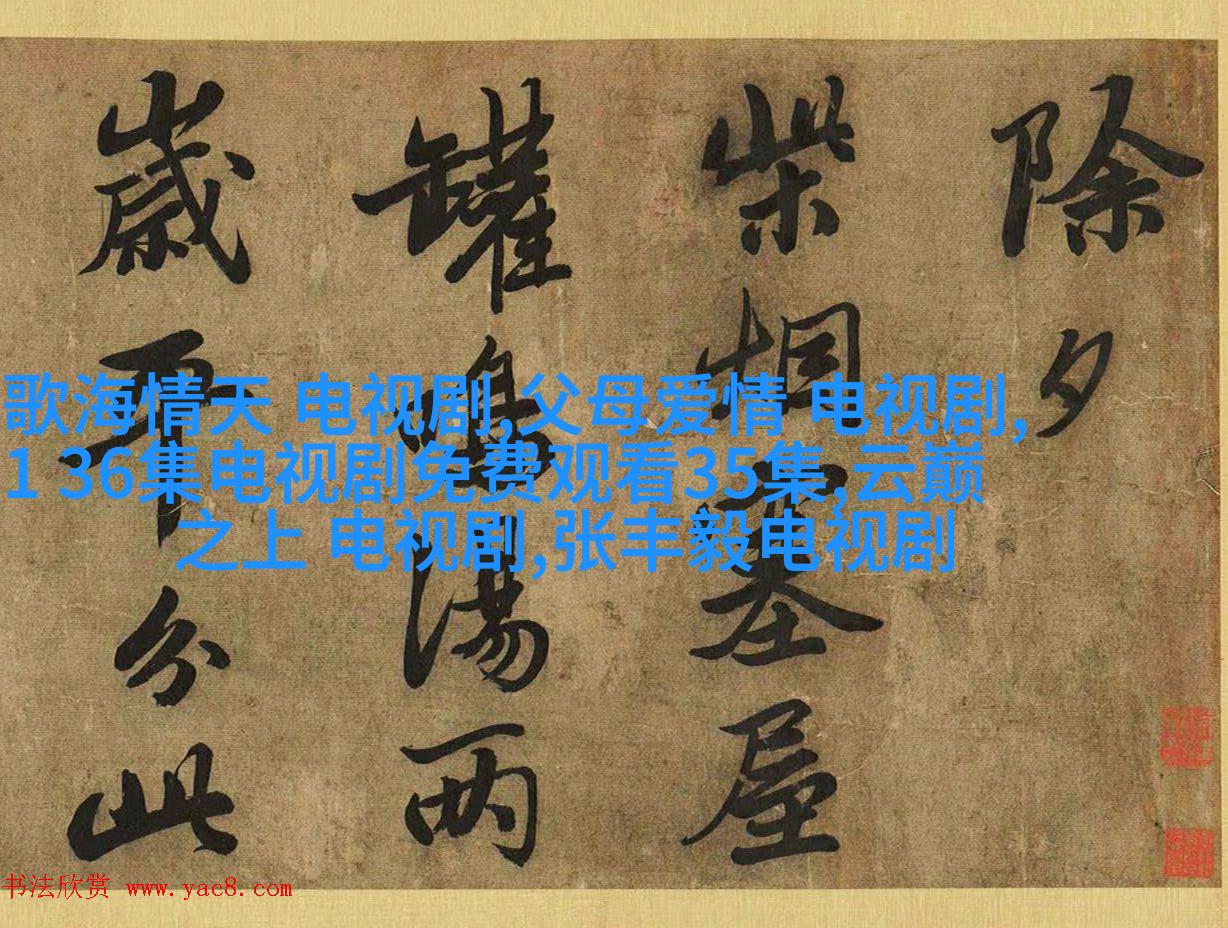 除夕
柴屋
罐鳴湯兩
歲平分此
歌海情天 电视剧,父母爱情 电视剧,
1 36集电视剧免费观看35集,云巅
之上 电视剧,张丰毅电视剧
书法欣赏 www.yac8.com